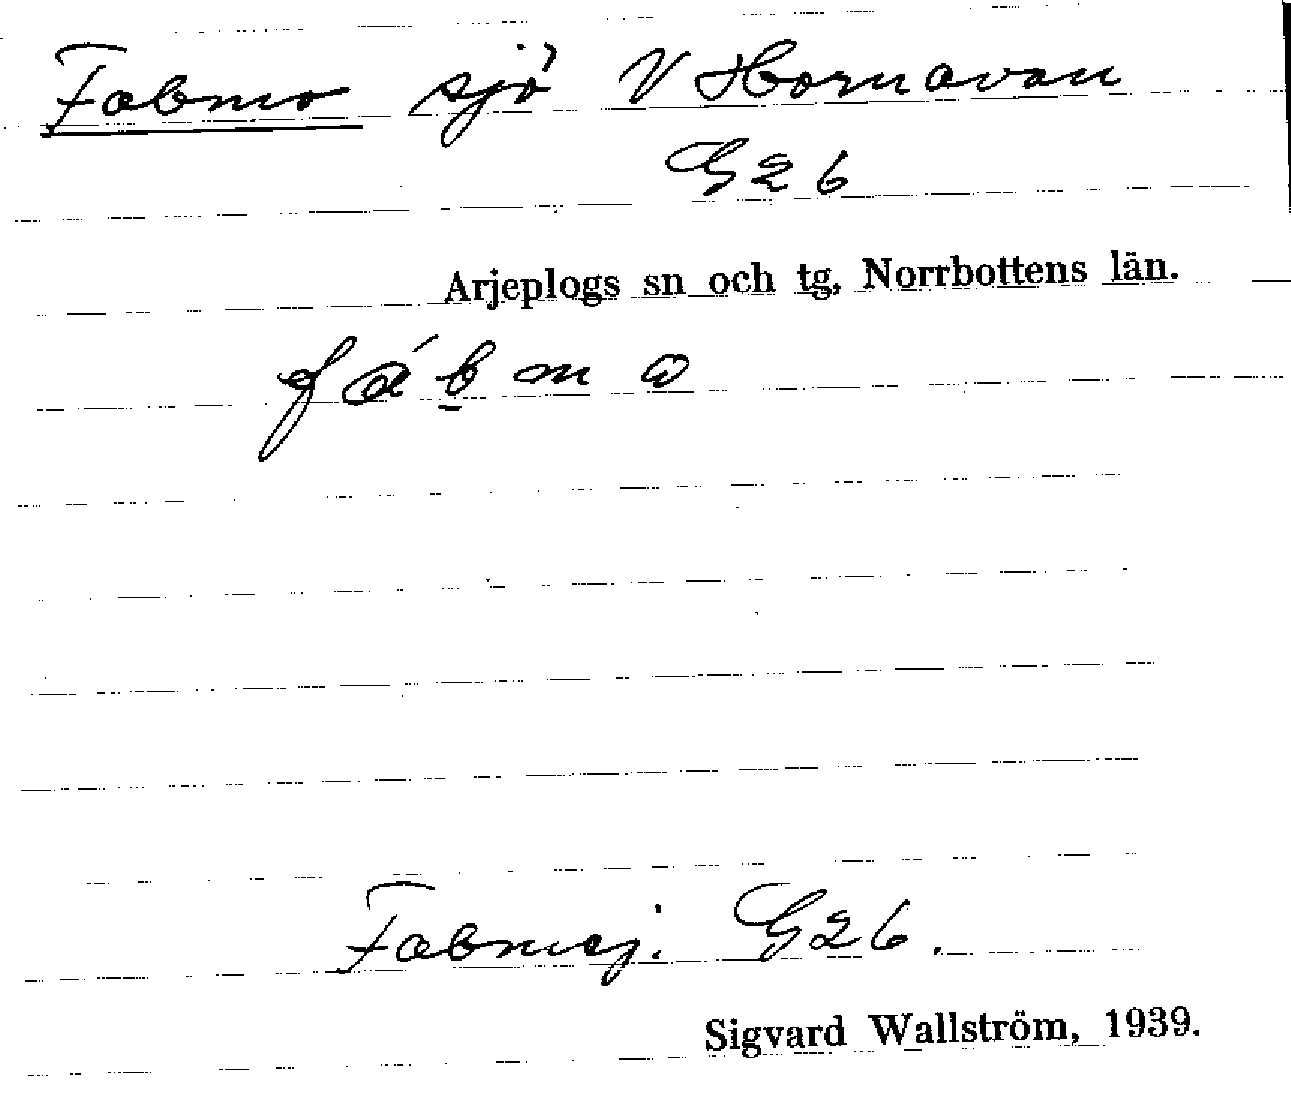 Fabmo sjö V Hornavan
G26
Arjeplogs sn och tg, Norrbottens län.
fáb̲mω
Fabmesj. G26.
Sigvard Wallström, 1939.